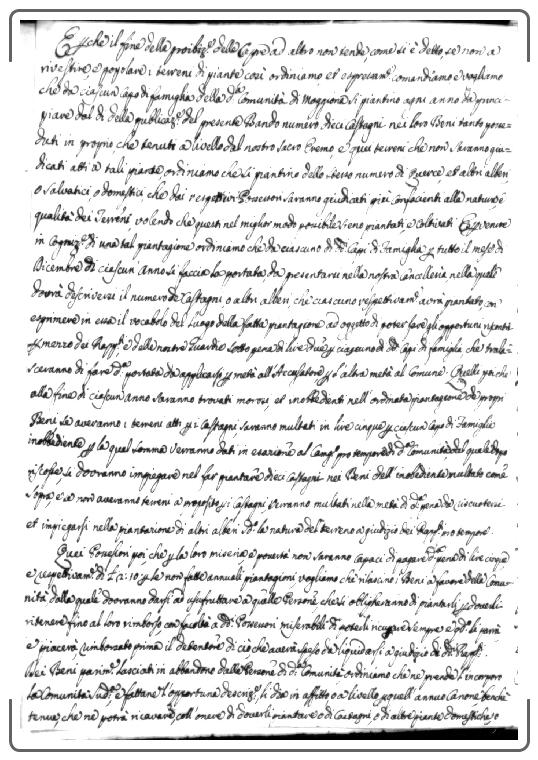 E perche il fine della proibiz.e delle Capre ad altro non tende come si è detto, se non a
rivestire e popolare i terreni di piante così ordiniamo et espressam.e comandiamo e vogliamo
che da ciascun Capo di famiglia della d.a Comunità di Moggiona si piantino ogni anno da princi-
piare dal dì della publicaz.e del presente Bando numero dieci Castagni nei loro Beni tanto posse-
duti in proprio che tenuti a livello dal nostro Sacro Eremo, e quei terreni che non saranno giu-
dicati atti a tali piante ordiniamo che si piantino dello stesso numero di Querce et altri alberi
o salvatici o domestici che dai respettivi Possessori saranno giudicati più confacienti alla natura e
qualità dei Terreni volendo che questi nel miglior modo possibile sieno piantati e coltivati E per venire
in Cogniz.e di una tal piantagione ordiniamo che da ciascuno di d.i Capi di Famiglia p tutto il mese di
Dicembre di ciascun anno si faccia la portata, da presentarsi nella nostra Cancelleria nella quale
dovrà descriversi il numero de Castagni o altri alberi che ciascuno respettivam.e avrà piantato, con
esprimere in essa il vocabolo del Luogo della fatta piantagione ad oggetto di poter fare gli opportuni riscontri
p mezzo dei Rapp.ti e delle nostre Guardie sotto pena di lire due p ciascuno di d.i Capi di famiglia che trala-
sceranno di fare d.a portata da applicarsi p metà all'Accusatore e p l'altra metà al Comune. Quelli poi che
alla fine di ciascun anno saranno trovati morosi et inobbedienti nell'ordinata piantagione dei propri
Beni se averanno i terreni atti p i Castagni, saranno multati in lire cinque p ciascun Capo di Famiglia
inobbediente p la qual somma verranno dati in esazione al Camp.o pro tempore di d.a Comunità dal quale dopo
riscosse si dovranno impiegare nel far piantare dieci Castagni nei Beni dell'inobediente multato come
sopra, e se non averanno terreni a proposito p i Castagni, verranno multati nella metà di d.a pena da riscuotersi
et impiegarsi nella piantazione di altri alberi s.o la natura del terreno a giudizio dei Rapp.ti pro tempore.
Quei Possessori poi che p la loro miseria e povertà non saranno capaci di pagare d.a pena di lire cinque
e respettivam.e di £ 2: 10 p le non fatte annuali piantagioni vogliamo che rilascino i Beni a favore della Comu-
nità dalla quale dovranno darsi ad usufruttare a quelle Persone che si obbligheranno di piantarli p doverli
ritenere fino al loro rimborso con facoltà a d.i Possessori miserabili di poterli ricuperare sempre e q.do li parrà
e piacerà rimborzato prima il detentore di ciò che averà speso da liquidarsi a giudizio de d.i Rapp.ti
Dei Beni parim.e lasciati in abbandono dalle Persone di d.a Comunità ordiniamo che ne prenda l'incorporo
la Comunità sud.a e fattane l'opportuna descriz.e si dia in affitto o a livello p quell'annuo Canone benchè
tenue, che ne potrà ricavare coll'onere di doverli piantare o di Castagni, o di altre piante domestiche, o